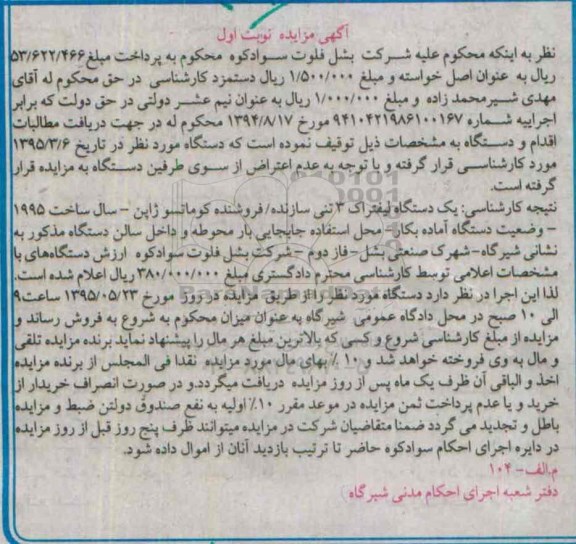 آگهی مزایده نوبت اول
نظر به اینکه محکوم علیه شرکت بشل فلوت سوادکوه محکوم به پرداخت مبلغ ۵۳/۶۲۲/۴۶۶
ریال به عنوان اصل خواسته و مبلغ ۱/۵۰۰/۰۰۰ ریال دستمزد کارشناسی در حق محکوم له آقای
مهدی شیرمحمد زاده و مبلغ ۱/۰۰۰/۰۰۰ ریال به عنوان نیم عشر دولتی در حق دولت که برابر
اجراییه شماره ۹۴۱۰۴۲۱۹۸۶۱۰۰۱۶۷ مورخ ۱۳۹۴/۸/۱۷ محکوم له در جهت دریافت مطالبات
اقدام و دستگاه به مشخصات ذیل توقیف نموده است که دستگاه مورد نظر در تاریخ ۱۳۹۵/۳/۶
مورد کارشناسی قرار گرفته و با توجه به عدم اعتراض از سوی طرفین دستگاه به مزایده قرار
گرفته است.
نتیجه کارشناسی: یک دستگاه لیفتراک ۳ تنی سازنده/فروشنده کوماتسو ژاپن – سال ساخت ۱۹۹۵
– وضعیت دستگاه آماده بکار – محل استفاده جابجایی بار محوطه و داخل سالن دستگاه مذکور به
نشانی شیرگاه – شهرک صنعتی بشل – فاز دوم – شرکت بشل فلوت سوادکوه ارزش دستگاه‌های با
مشخصات اعلامی توسط کارشناسی محترم دادگستری مبلغ ۳۸۰/۰۰۰/۰۰۰ ریال اعلام شده است.
لذا این اجرا در نظر دارد دستگاه مورد نظر را از طریق مزایده در روز مورخ ۱۳۹۵/۰۵/۲۳ ساعت ۹
الی ۱۰ صبح در محل دادگاه عمومی شیرگاه به عنوان میزان محکوم به شروع به فروش رساند و
مزایده از مبلغ کارشناسی شروع و کسی که بالاترین مبلغ هر مال را پیشنهاد نماید برنده مزایده تلقی
و مال به وی فروخته خواهد شد و ۱۰ ٪ بهای مال مورد مزایده نقدا فی المجلس از برنده مزایده
اخذ و الباقی آن ظرف یک ماه پس از روز مزایده دریافت میگردد.و در صورت انصراف خریدار از
خرید و یا عدم پرداخت ثمن مزایده در موعد مقرر ۱۰٪ اولیه به نفع صندوق دولتن ضبط و مزایده
باطل و تجدید می گردد ضمنا متقاضیان شرکت در مزایده میتوانند ظرف پنج روز قبل از روز مزایده
در دایره اجرای احکام سوادکوه حاضر تا ترتیب بازدید آنان از اموال داده شود.
م.الف – ۱۰۴
دفتر شعبه اجرای احکام مدنی شیرگاه